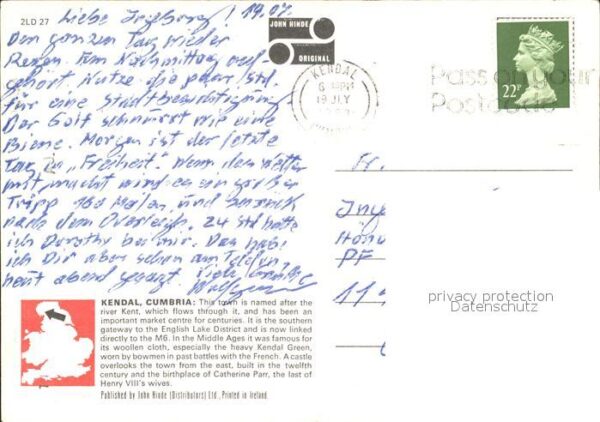 2LD 27
Liebe Ingeborg! 19.07.
Den ganzen Tag wieder
Regen. Am Nachmittag auf-
gehört. Nutze die paar Std.
für eine Stadtbesichtigung
Der Golf schnurrt wie eine
Biene. Morgen ist der letzte
Tag in „Freiheit". Wenn das Wetter
mitmacht wird es ein großer
Tripp 160 Meilen und zurück
nach dem 24 Std hatte
ich Dorothy bei mir. Das hab
ich Dir aber schon am Telefon
heut abend gesagt. Viele Grüße
Wolfgang
JOHN HINDE
ORIGINAL
KENDAL
19 JLY
CUMBRIA
Pass on your
Postcode
22P
Fr.
Inge
PF
privacy protection
Datenschutz
KENDAL, CUMBRIA: This town is named after the
river Kent, which flows through it, and has been an
important market centre for centuries. It is the southern
gateway to the English Lake District and is now linked
directly to the M6. In the Middle Ages it was famous for
its woollen cloth, especially the heavy Kendal Green,
worn by bowmen in past battles with the French. A castle
overlooks the town from the east, built in the twelfth
century and the birthplace of Catherine Parr, the last of
Henry VIII's wives.
Published by John Hinde (Distributors) Ltd., Printed in Ireland.